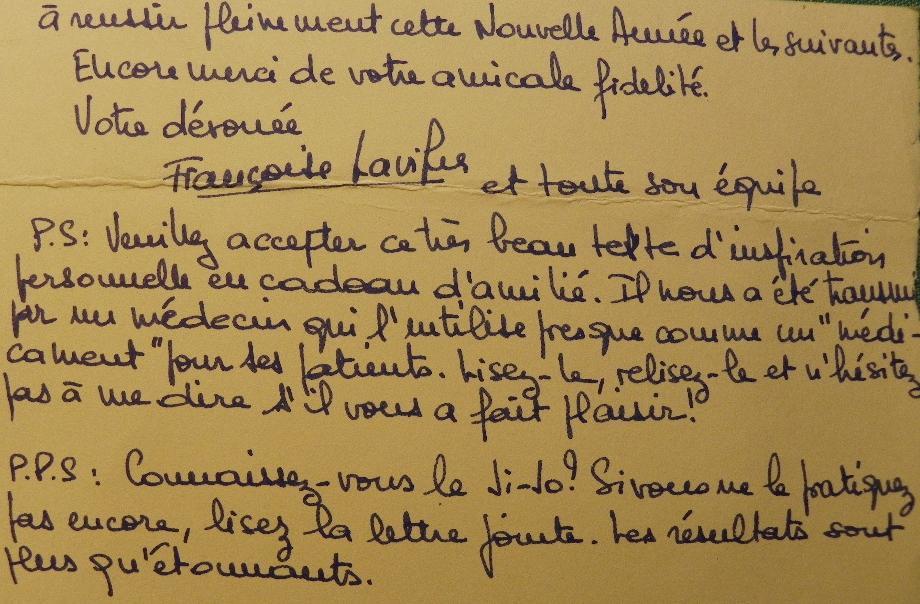 à réussir pleinement cette Nouvelle Année et les suivantes.
Encore merci de votre amicale fidelité.
Votre dévouée
Françoise et toute son équipe
P.S: Veuillez accepter ce très beau texte d'inspiration
personnelle en cadeau d'amitié. Il nous a été transmis
par un médecin qui l'utilise presque comme un "médi-
cament" pour ses patients. Lisez-le, relisez-le et n'hésitez
pas à me dire s'il vous a fait plaisir!
P.P.S: Connaissez-vous le Ji-Jo? Si vous ne le pratiquez
pas encore, lisez la lettre jointe. Les résultats sont
plus qu'étonnants.